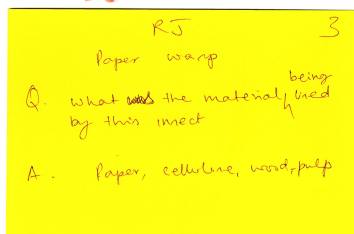 RJ 3
Paper wasp
Q. what was the material being used
by this insect
A. Paper, cellulose, wood, pulp